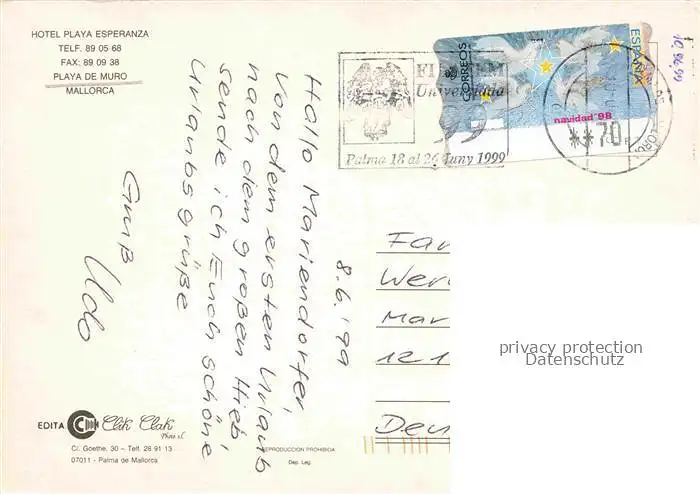 HOTEL PLAYA ESPERANZA
TELF. 89 05 68
FAX: 89 09 38
PLAYA DE MURO
MALLORCA
8.6.'99
Hallo Mariendorfer,
Von dem ersten Urlaub
nach dem großen Hieb,
sende ich Euch schöne
Urlaubsgrüße
Gruß
Udo
EDITA Clik Clak
C/. Goethe, 30 - Telf. 28 91 13
07011 - Palma de Mallorca
REPRODUCCION PROHIBIDA
Dep. Leg.
Palma 18 al 26 Juny 1999
CORREOS
ESPAÑA
navidad '98
**70
10.96.99
Fa
Wer
Mar
121
Deu
privacy protection
Datenschutz